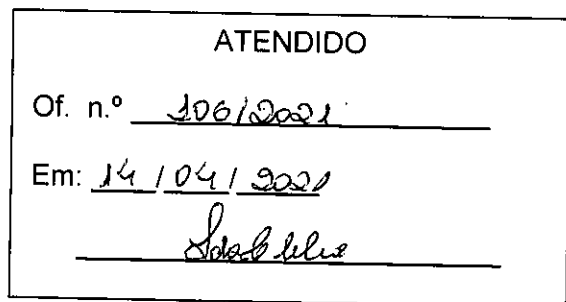 ATENDIDO
Of. n.º 106/2021
Em: 14 / 04 / 2021